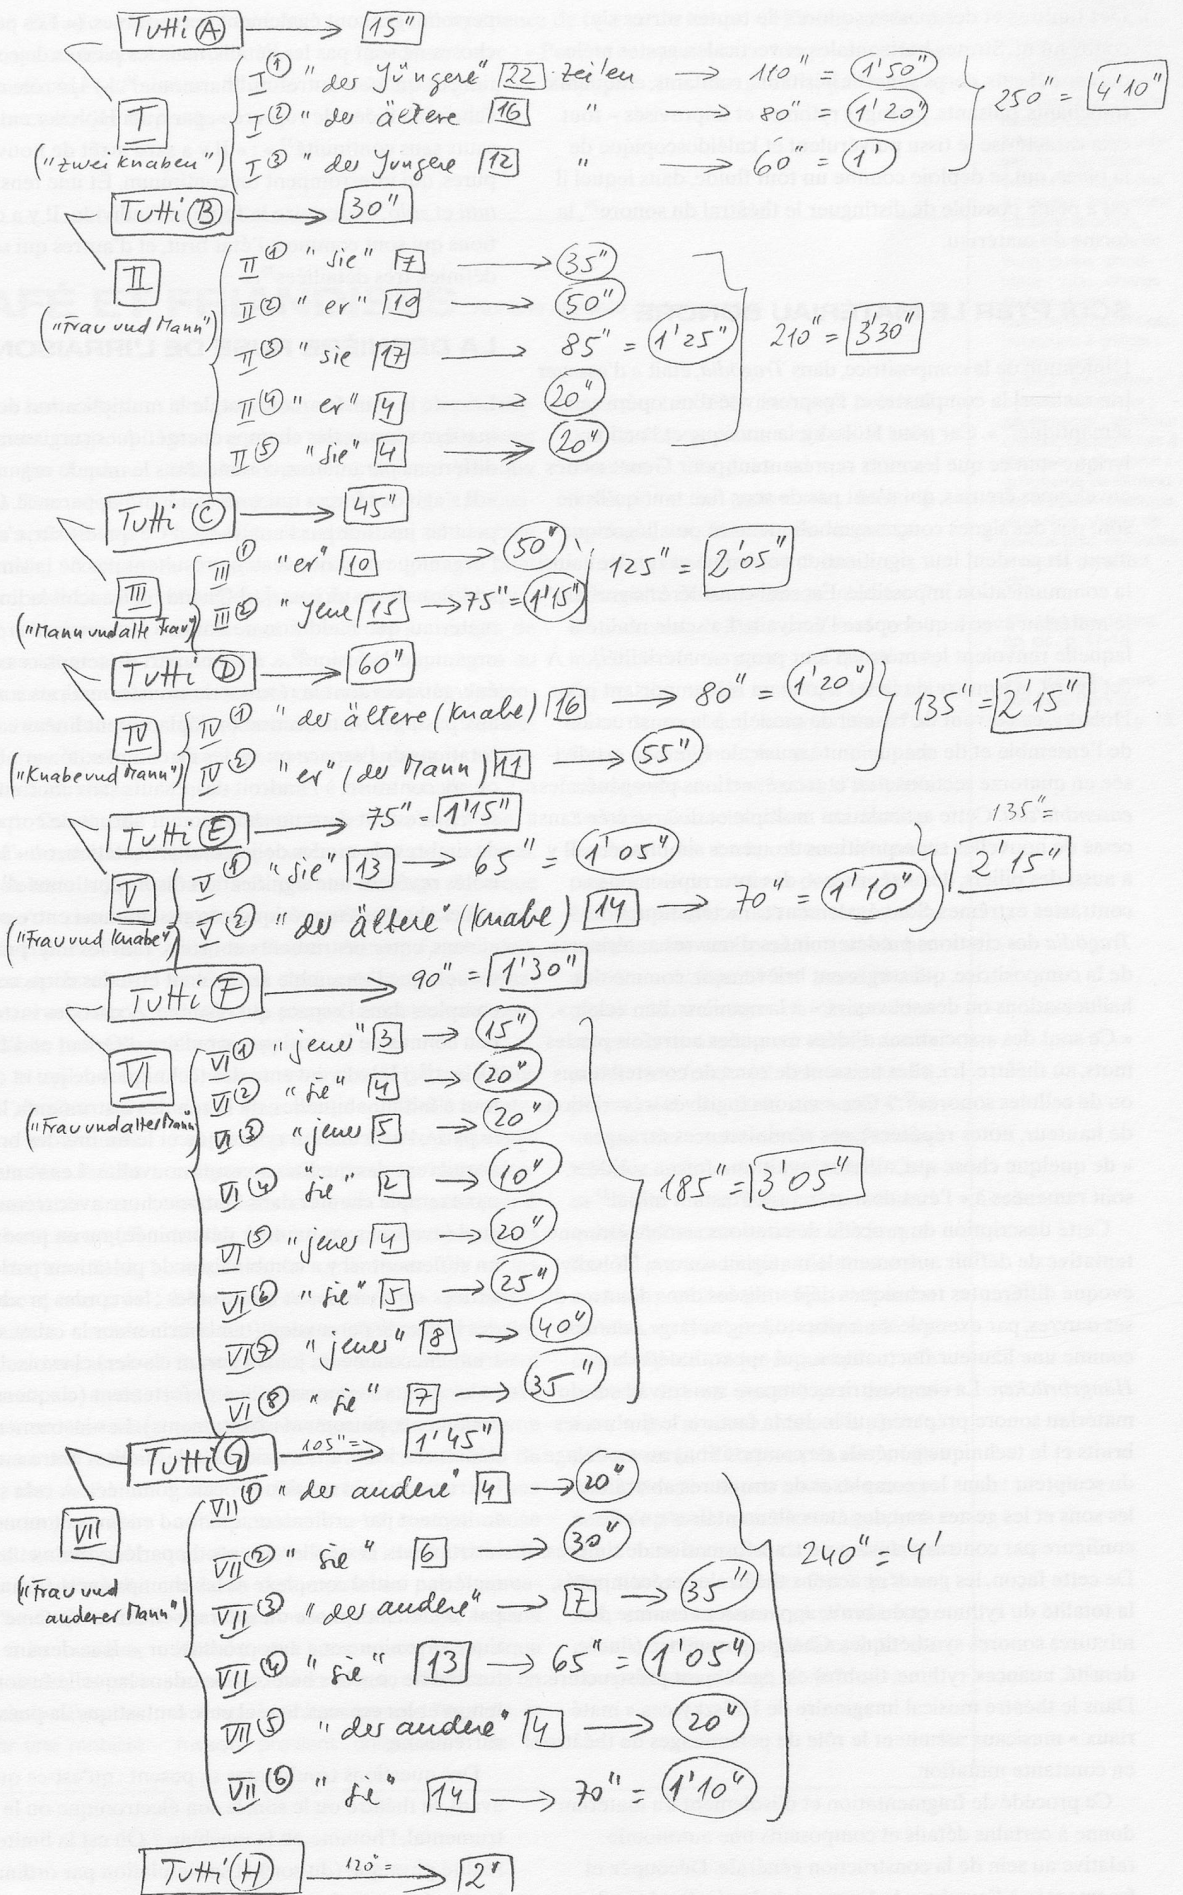 Tutti Ⓐ → 15"
I ① "der Jüngere" 22 Zeilen → 110" = 1'50"
I ② "der ältere 16 " → 80" = 1'20"
I ③ "der Jungere 12 " → 60" = 1'
250" 4'10"
I
("zwei Knaben")
Tutti Ⓑ → 30"
II
("Frau und Mann")
II ① "sie" 7 → 35"
II ② "er" 10 → 50"
II ③ "sie" 17 → 85" = 1'25"
II ④ "er" 4 → 20"
II ⑤ "sie" 4 → 20"
210" = 3'30"
Tutti Ⓒ → 45"
III
("Mann und alte Frau")
III ① "er" 10 → 50"
III ② "jene 15 → 75" = 1'15"
125" = 2'05"
Tutti Ⓓ → 60"
IV
("Knabe und Mann")
IV ① "der ältere (Knabe) 16 → 80" = 1'20"
IV ② "er" (der Mann) 11 → 55"
135" = 2'15"
Tutti Ⓔ → 75" = 1'15"
V
("Frau und Knabe")
V ① "sie" 13 → 65" = 1'05"
V ② "der ältere" (Knabe) 14 → 70" = 1'10"
135" =
2'15"
Tutti Ⓕ → 90" = 1'30"
VI
("Frau und alter Mann")
VI ① "jener" 3 → 15"
VI ② "sie" 4 → 20"
VI ③ "jener 5 → 20"
VI ④ "sie" 2 → 10"
VI ⑤ "jener 4 → 20"
VI ⑥ "sie" 5 → 25"
VI ⑦ "jener" 8 → 40"
VI ⑧ "sie" 7 → 35"
185" = 3'05"
Tutti Ⓖ 105" = → 1'45"
VII
("Frau und
anderer Mann")
VII ① "der andere" 4 → 20"
VII ② "sie" 6 → 30"
VII ③ "der andere" → 7 → 35"
VII ④ "sie" 13 → 65" = 1'05"
VII ⑤ "der andere" 4 → 20"
VII ⑥ "sie" 14 → 70" = 1'10"
240" = 4'
Tutti Ⓗ 120" = → 2'